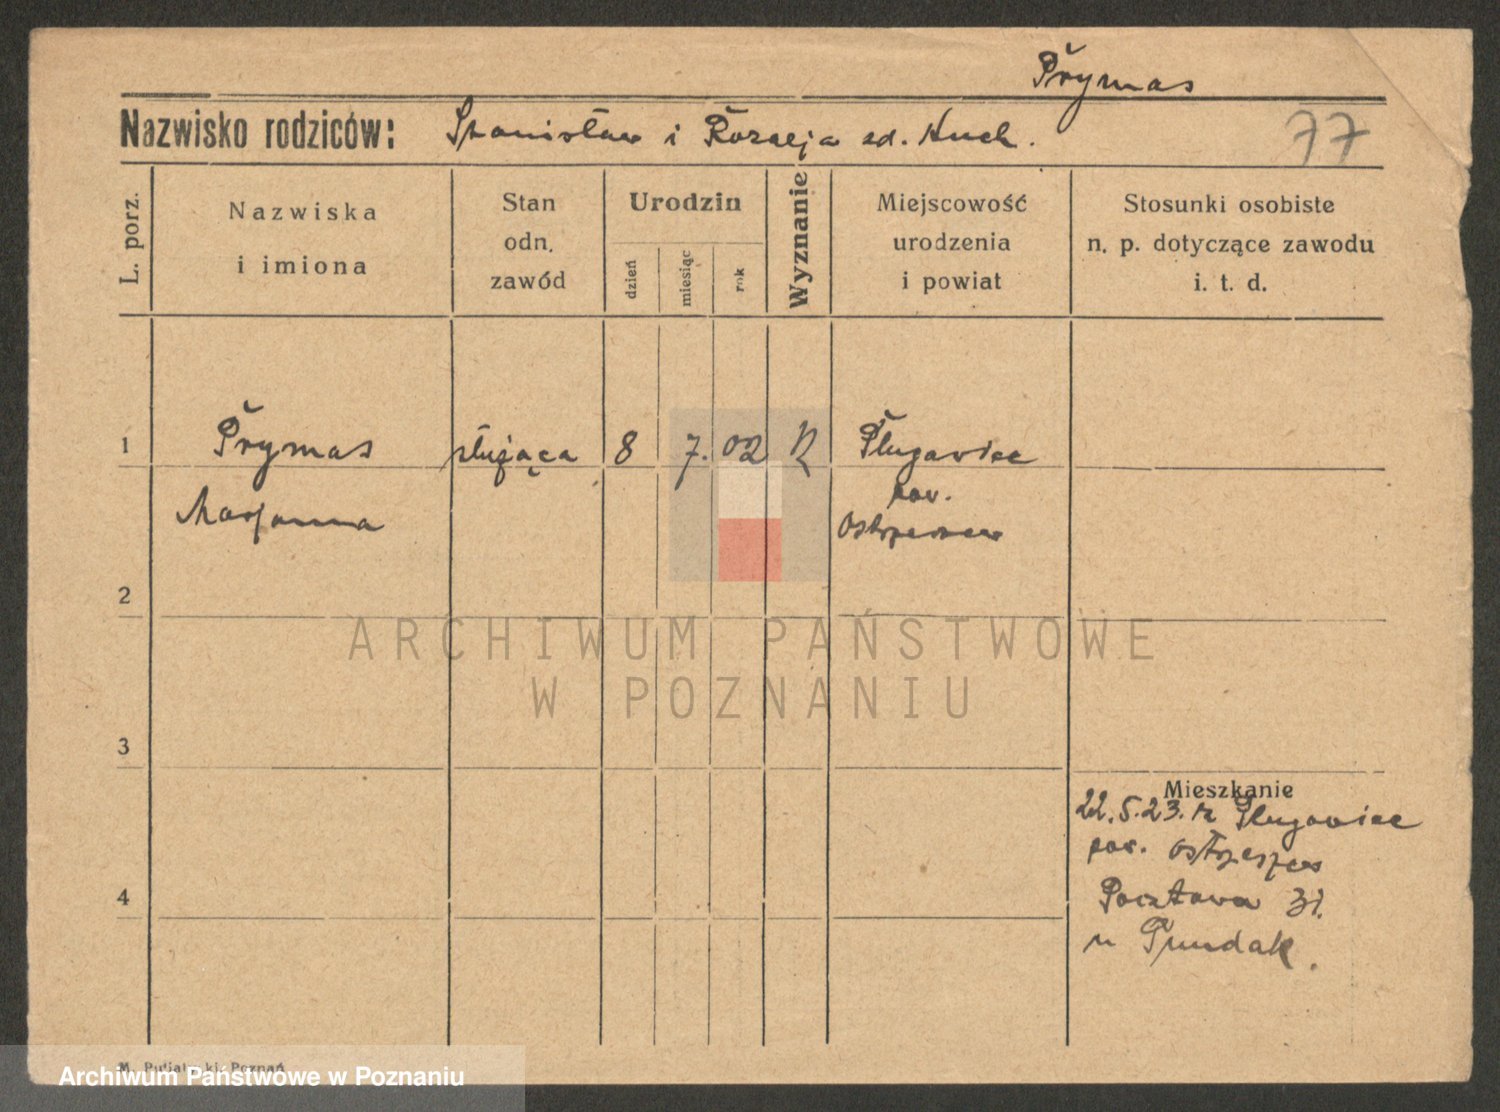 Prymas
Nazwisko rodziców: Stanisław i Rozalja zd. Huch.
77
L. porz.
Nazwiska
i imiona
Stan
odn.
zawód
Urodzin
dzień
miesiąc
rok
Wyznanie
Miejscowość
urodzenia
i powiat
Stosunki osobiste
n. p. dotyczące zawodu
i. t. d.
1
Prymas
służąca
8
7.
02
R
Pługawice
pow.
Marjanna
Ostrzeszow
2
ARCHIWUM PAŃSTWOWE
W POZNANIU
3
Mieszkanie
22.5.23. z Pługawice
pow. Ostrzeszow
4
Pocztowa 31.
u Pundak.
M. Putiatycki, Poznań
Archiwum Państwowe w Poznaniu